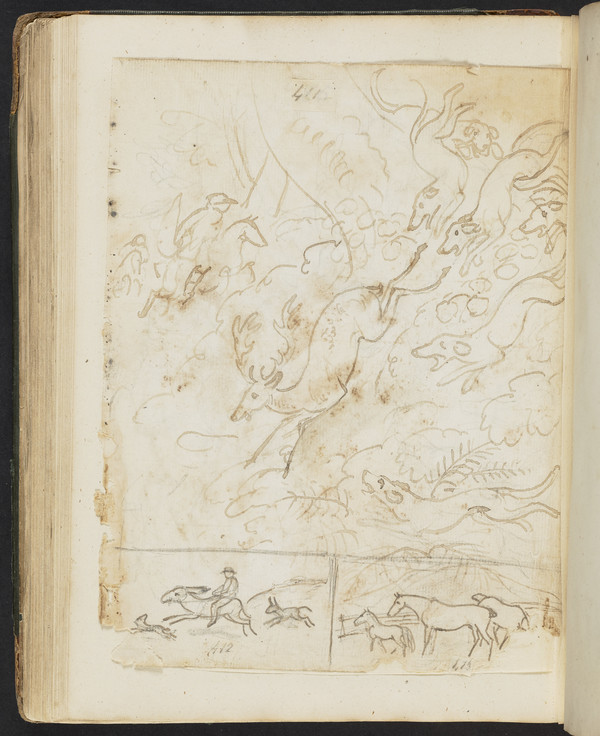 411
412
413